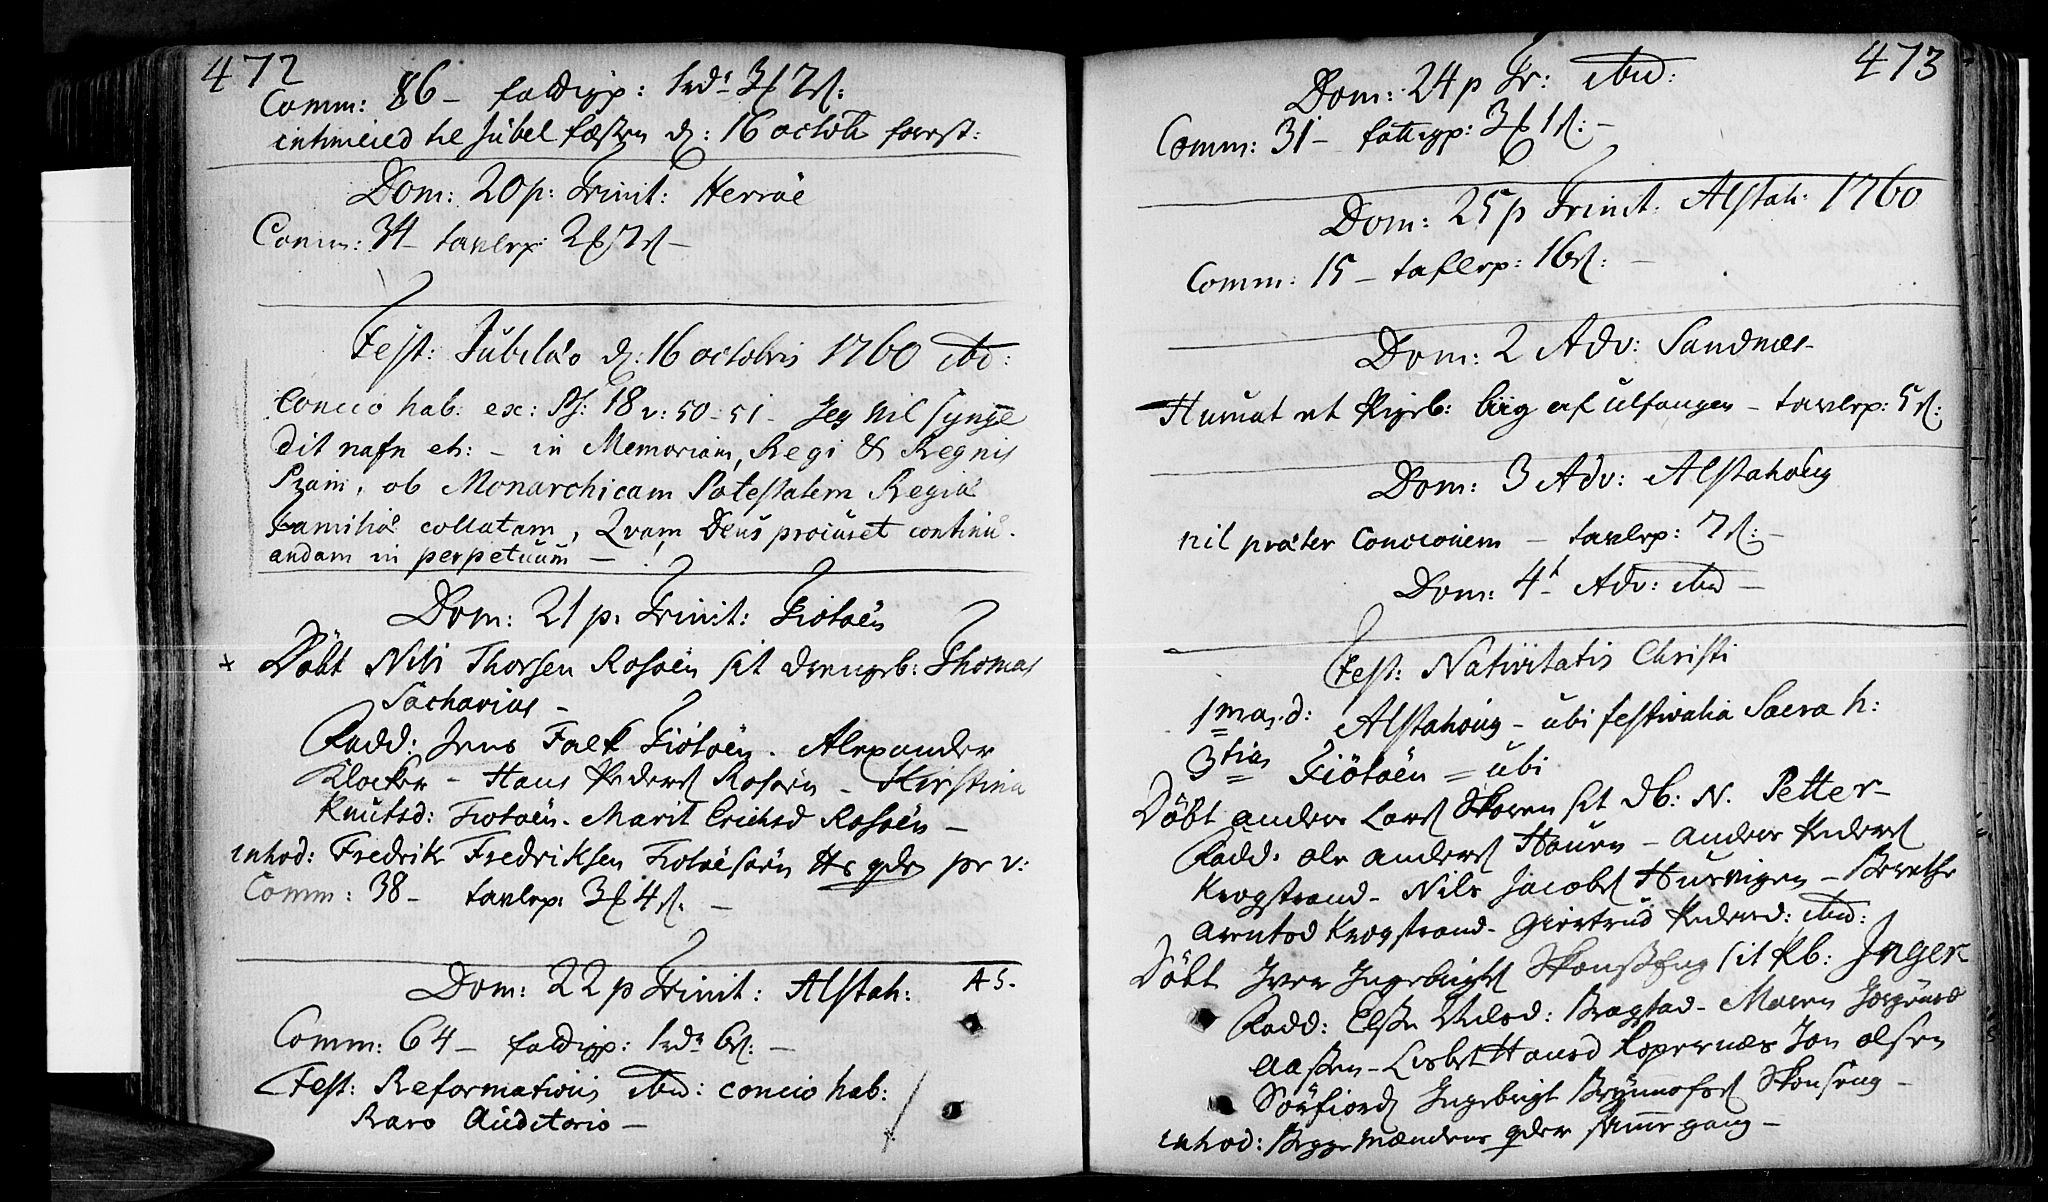 472
Comm: 86 – fattigp: 3 7 s:
intimered til Jubel fæsten d: 16 octobr forest:
Dom: 20 p: Trinit: Herröe
Comm: 34 – tavlep: 2 7 s –
Fest: Jubilæo d: 16 octobris 1760 ibid:
Concio hab: ex: Ps: 18 v: 50-51 – Jeg vil synge
dit nafn etc: – in Memoriam, Regi & Regnis
ob Monarchicam Potestatem Regiæ
Familiæ collatam, Qvam Deus procuret continu-
andam in perpetuum – !
Dom: 21 p. Trinit: Tiötöen
+ Döbt Nils Thorsen Rosöen sit drengeb: Thomas
Sacharias –
Fadd: Jens Falk Tiötöen. Alexander
Klocker – Hans Peders Rosöen – Kirstina
Knutsd: Tiotöen. Marit Erichsd Rosöen –
introd: Fredrik Fredriksen
Comm: 38 – tavlep: 3 4 s. –
Dom: 22 p Trinit: Alstah: A 5.
Comm: 64 – fattigp: 6 s: –
Fest: Reformationis ibid: concio hab:
Raro Auditorio –
473
Dom: 24 p Tr: ibid:
Comm: 31 – fattigp: 3 1 s: –
Dom: 25 p Trinit: Alstah: 1760
Comm: 15 – taflep: 16 s: –
Dom: 2 Adv: Sandnæs
Humat et Pigeb: tavlep: 5 s:
Dom: 3 Adv: Alstahoug
nil præter Concionem – tavlep: 7 s: –
Dom: 4t Adv: ibid –
Fest: Nativitatis Christi
1ma. d: Alstahoug – ubi festivalia Sacra h:
3tia Tiötöen = ubi
Döbt Anders Lars sit db: N. Petter –
Fadd: Ole Anders – Anders Peders
Krogstrand – Nils Jacobs Husvigen – Berethe
Arentsd Krogstrand – Giertrud Pedersd: ibid:
Döbt Iver Ingebrigts sit Pb: Inger
Fadd: Nilsd: Bragstad – Maren Jørgensd
– Lisbet Hansd Jon Olsen
Sörfiord Ingebrigt
introd: Begge samme gang –